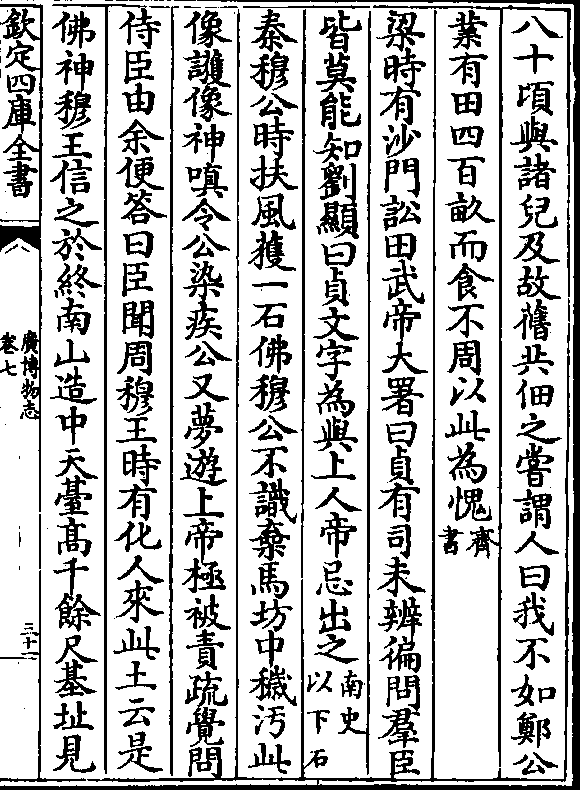 八十頃與諸兒及故舊共佃之嘗謂人曰我不如鄭公
業有田四百畝而食不周以此為愧齊書
梁時有沙門訟田武帝大署曰貞有司未辨徧問羣臣
皆莫能知劉顯曰貞文字為與上人帝忌出之南史以下石
秦穆公時扶風獲一石佛穆公不識棄馬坊中穢汚此
像護像神嗔令公染疾公又夢遊上帝極被責疏覺問
侍臣由余便答曰臣聞周穆王時有化人來此土云是
佛神穆王信之於終南山造中天臺高千餘尺基址見
欽定四庫全書
廣博物志
卷七
三十二